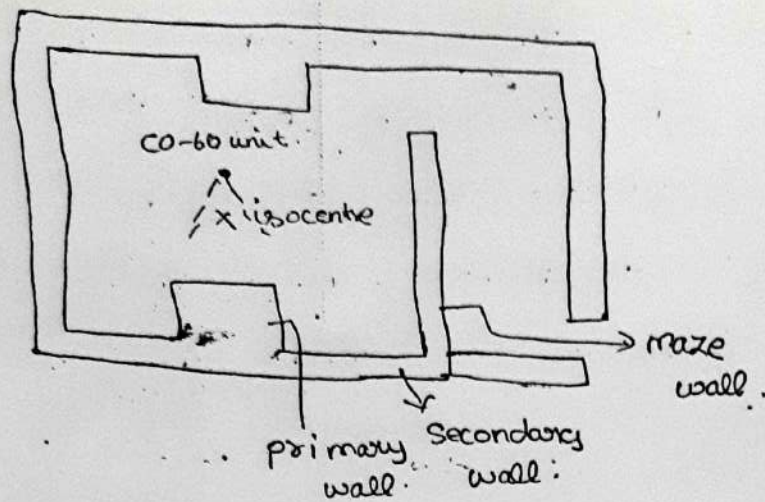 CO-60 unit.
x isocentre
maze
wall.
primary
wall.
Secondary
wall: